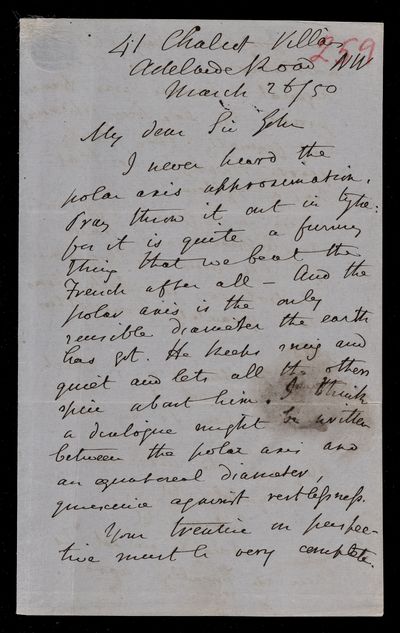 41 Chalcot Villas
259
Adelaide Road NW
March 26/50
My dear Sir John
I never heard the
polar axis approximation.
Pray throw it out in type:
for it is quite a funny
thing that we beat the
French after all — And the
polar axis is the only
sensible diameter the earth
has got. He keeps snug and
quiet and lets all the others
spin about him. I think
a dialogue might be written
between the polar axis and
an equatoreal diameter,
quiescence against restlessness.
Your treatise on perspec-
tive must be very complete.